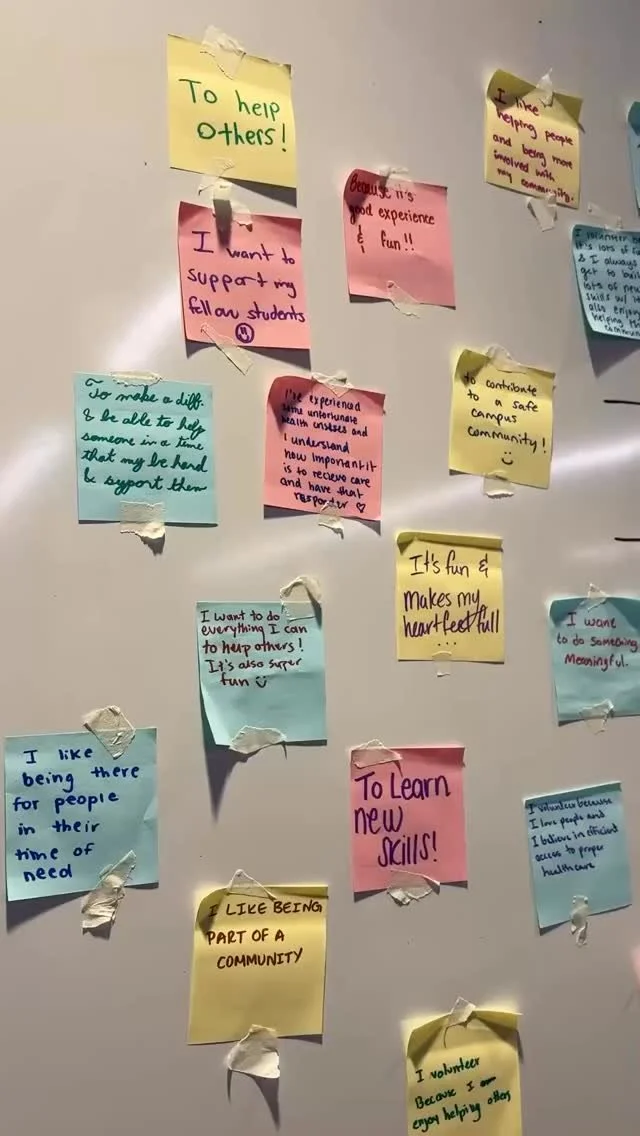 To help
Others!
I like
helping people
and being more
involved with
my community.
Because it's
good experience
& fun!!
I want to
support my
fellow students
I volunteer
it's lots of
& I always
get to
lots of new
skills w/
also enjoy
helping
To make a diff.
& be able to help
someone in a time
that my be hard
& sypport them
I've experienced
some unfortunate
health crises and
I understand
how important it
is to recieve care
and have that
responder ♡
to contribute
to a safe
campus
community!
It's fun &
makes my
heart feel full
...
I want to do
everything I can
to help others!
It's also super
fun
I want
to do something
Meaningful.
I like
being there
for people
in their
time of
need
To Learn
new
skills!
I volunteer because
I love people and
I believe in efficient
access to proper
healthcare
I LIKE BEING
PART OF A
COMMUNITY
I volunteer
Because I
enjoy helping others